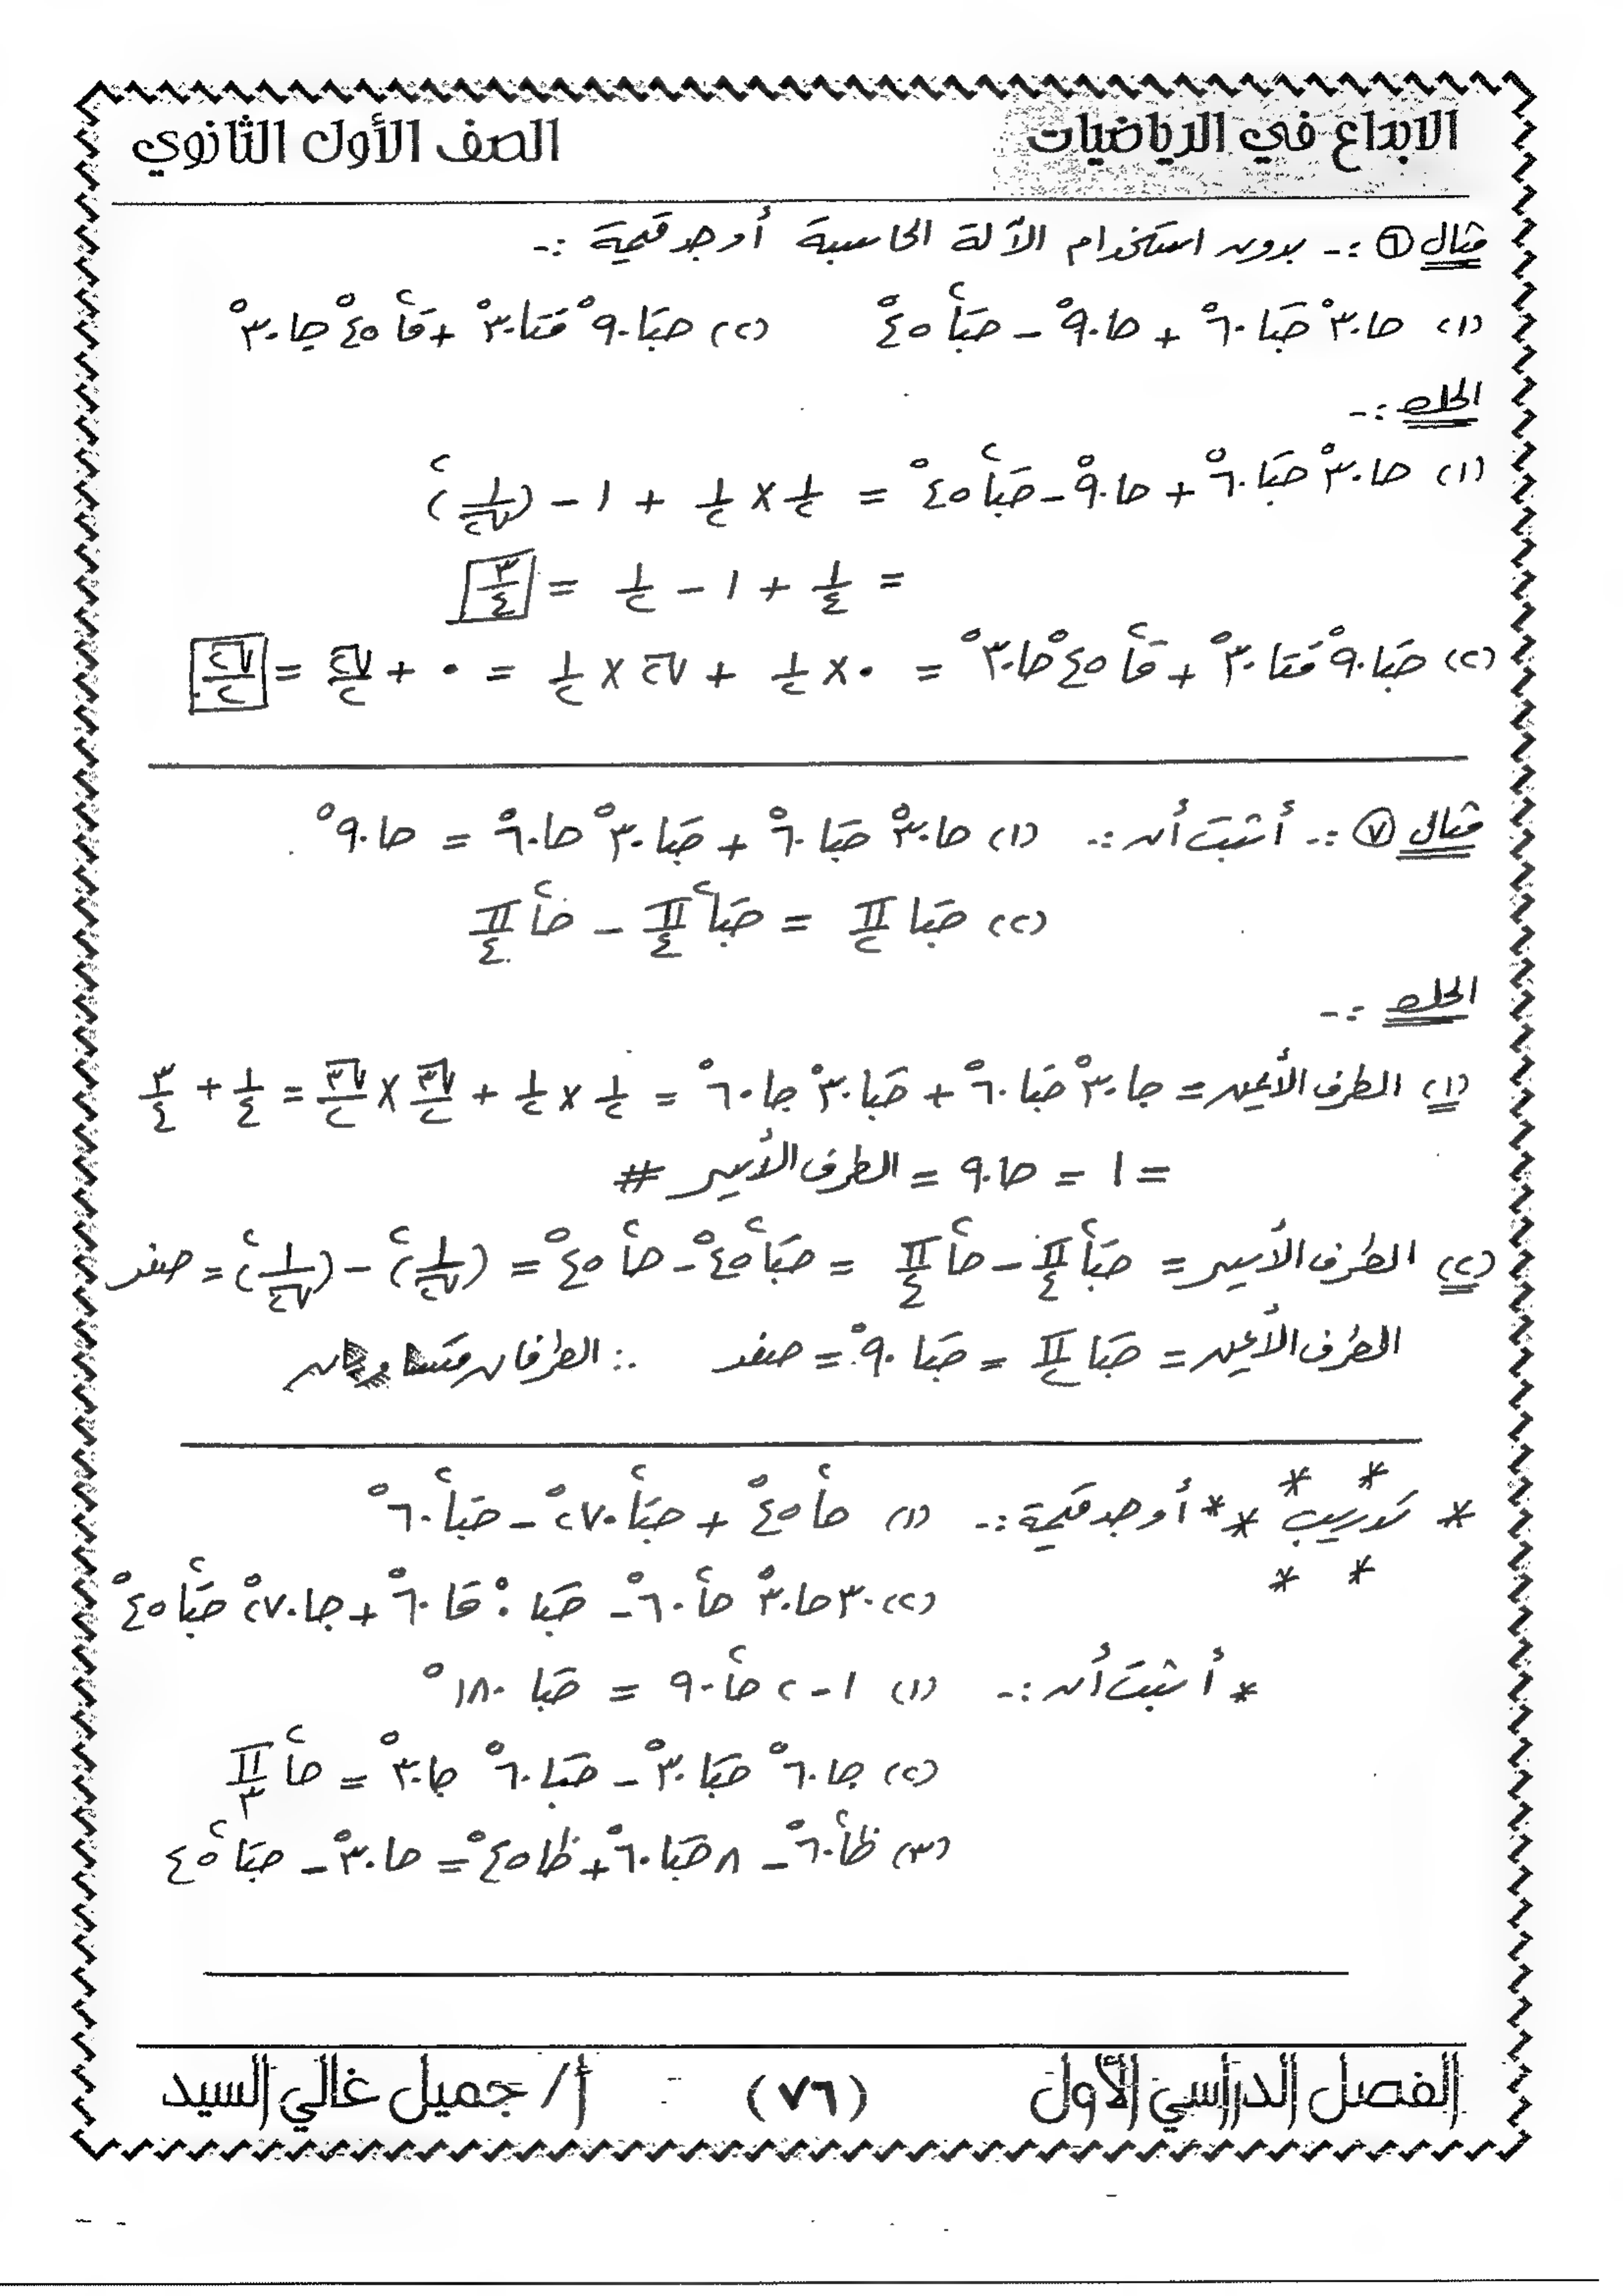 الابداع في الرياضيات الصف الأول الثانوي
مثال ٦ :- بدون استخدام الآلة الحاسبة أوجد قيمة :-
(١) حا٣٠° حتا٦٠° + حا٩٠° - حتا²٤٥° (٢) حتا٩٠° قتا٣٠° + قا²٤٥° جا٣٠°
الحل :-
(١) حا٣٠° حتا٦٠° + حا٩٠° - حتا²٤٥° = ١/٢ × ١/٢ + ١ - (١/√٢)²
= ١/٤ + ١ - ١/٢ = ٣/٤
(٢) حتا٩٠° قتا٣٠° + قا²٤٥° حا٣٠° = ٠ × ١/٢ + √٢ × ١/٢ = ٠ + √٢/٢ = √٢/٢
مثال ٧ :- أثبت أن :- (١) حا٣٠° حتا٦٠° + حتا٣٠° حا٦٠° = حا٩٠°
(٢) حتا π/٢ = حتا² π/٤ - حا² π/٤
الحل :-
(١) الطرف الأيمن = جا٣٠° حتا٦٠° + حتا٣٠° جا٦٠° = ١/٢ × ١/٢ + √٣/٢ × √٣/٢ = ١/٤ + ٣/٤
= ١ = حا٩٠ = الطرف الأيسر #
(٢) الطرف الأيسر = حتا² π/٤ - حا² π/٤ = حتا²٤٥° - حا²٤٥° = (١/√٢)² - (١/√٢)² = صفر
الطرف الأيمن = حتا π/٢ = حتا ٩٠° = صفر ∴ الطرفان متساويان
* تدريب * * أوجد قيمة :- (١) حا²٤٥° + حتا²٢٧٠° - حتا²٦٠°
(٢) ٣٠حا٣٠° حا²٦٠° - حتا٠° قا٦٠° + جا٢٧٠° حتا²٤٥°
* أثبت أن :- (١) ١ - ٢حا²٩٠ = حتا ١٨٠°
(٢) جا٦٠° حتا٣٠° - حتا٦٠° جا٣٠° = حا² π/٣
(٣) ظا²٦٠° - ٨حتا²٦٠° + ظا٤٥° = حا٣٠° - حتا²٤٥
الفصل الدراسي الأول (٧٦) أ/ جميل غالي السيد